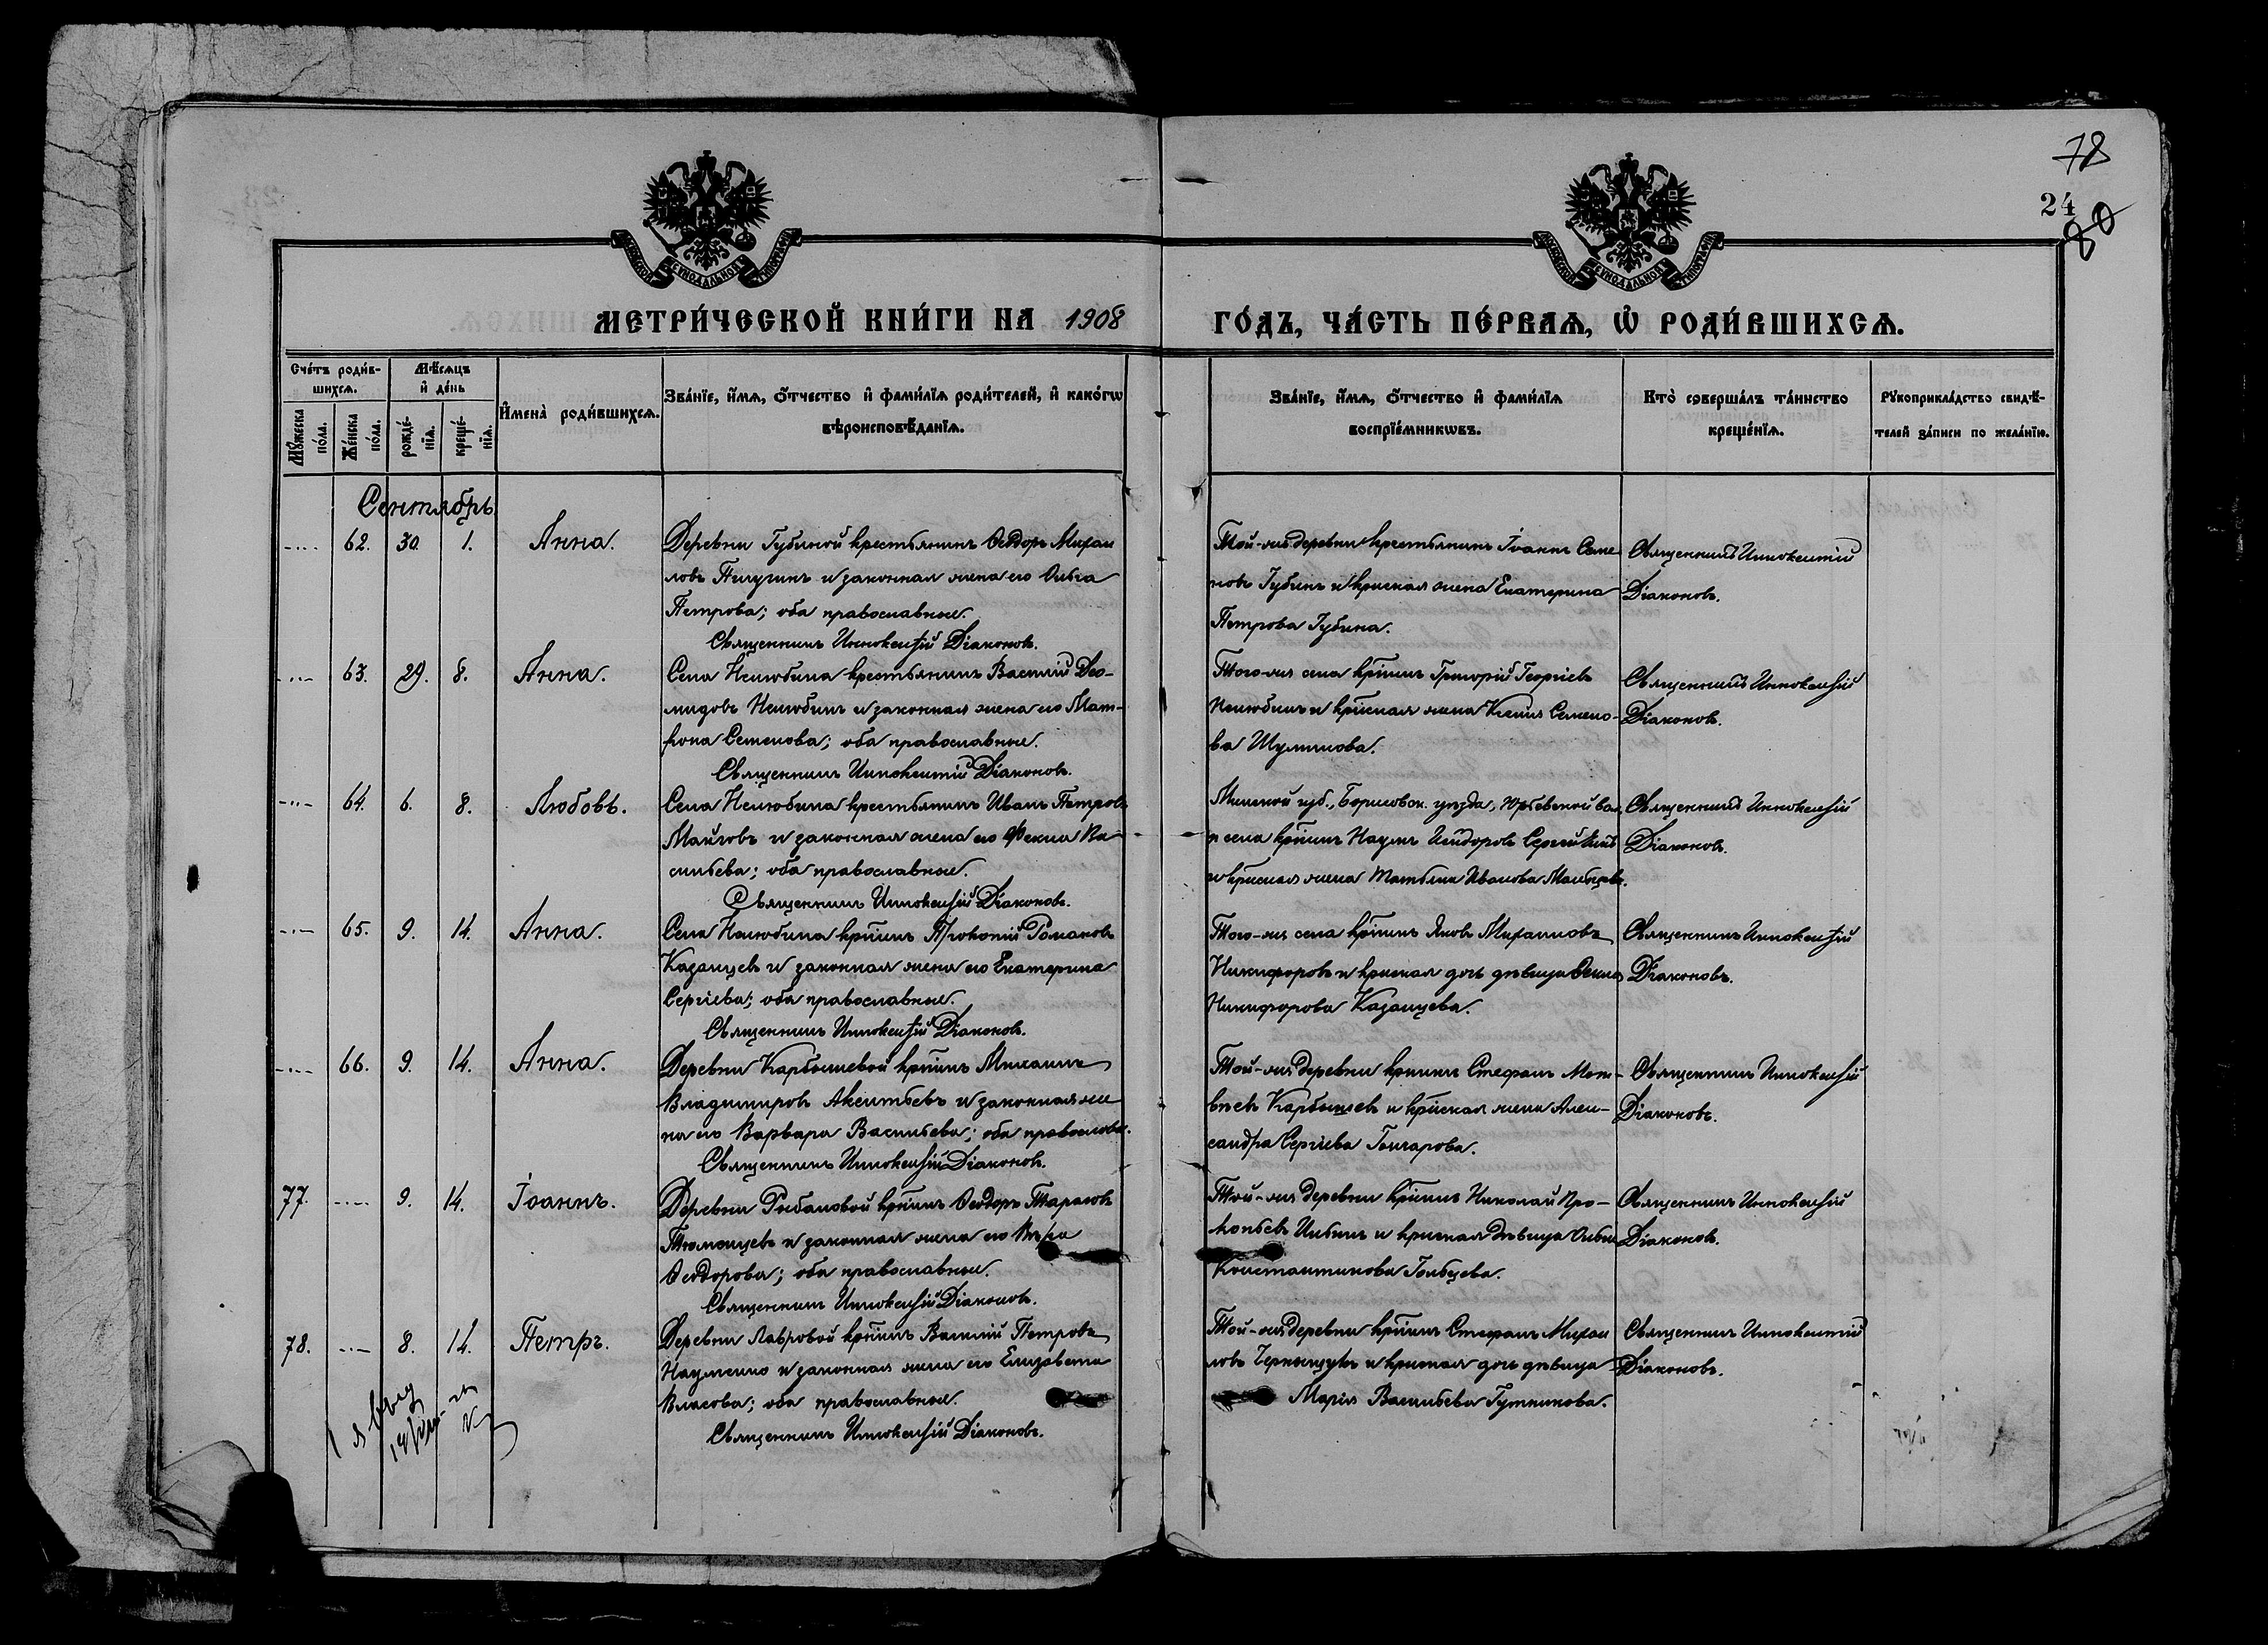 78
24
80
МОСКОВСКОЙ СѴНОДАЛЬНОЙ ТИПОГРАФІИ
МОСКОВСКОЙ СѴНОДАЛЬНОЙ ТИПОГРАФІИ
МЕТРИ́ЧЕСКОЙ КНИ́ГИ НА 1908
ГО́ДЪ, ЧА́СТЬ ПЕ́РВАѦ, Ѽ РОДИ́ВШИХСѦ.
Сче́тъ роди́в-
шихсѧ.
Мѣ́сѧцъ
и҆ де́нь
Мꙋ́жеска
по́ла.
Же́нска
по́ла.
рожде́-
нїѧ.
креще́-
нїѧ.
И҆мена̀ роди́вшихсѧ.
Зва́нїе, и҆́мѧ, ѻ҆́тчество и҆ фами́лїѧ роди́телей, и҆ како́гѡ
вѣроисповѣ́данїѧ.
Зва́нїе, и҆́мѧ, ѻ҆́тчество и҆ фами́лїѧ
воспрїе́мникѡвъ.
Кто̀ соверша́лъ та́инство
креще́нїѧ.
Рꙋкоприкла́дство свидѣ́-
телей за́писи по жела́нїю.
Сентябрь
62. 30. 1. Анна.
Деревни Губиной крестьянинъ Ѳеодоръ Михаи
ловъ Пичугинъ и законная жена его Ольга
Петрова; оба православные.
Священникъ Иннокентій Діаконовъ.
Той-же деревни крестьянинъ Іоаннъ Семе
новъ Губинъ и крнская жена Екатерина
Петрова Губина.
Священникъ Иннокентій
Діаконовъ.
63. 29. 8. Анна.
Села Нелюбина крестьянинъ Василій Дио-
мидовъ Нелюбинъ и законная жена его Мат-
рона Семенова; оба православные.
Священникъ Иннокентій Діаконовъ.
Того-же села крнинъ Григорій Георгіевъ
Нелюбинъ и крнская жена Ксенія Семено-
ва Шумилова.
Священникъ Иннокентій
Діаконовъ.
64. 6. 8. Любовь.
Села Нелюбина крестьянинъ Иванъ Петровъ
и законная жена его Фекла Ва
сильева; оба православные.
Священникъ Иннокентій Діаконовъ.
Минской губ., Борисовск. уѣзда, Юрьевской вол.
и села крнинъ Наумъ Исидоровъ
и крнская жена Татьяна Иванова
Священникъ Иннокентій
Діаконовъ.
65. 9. 14. Анна.
Села Нелюбина крнинъ Прокопій Романовъ
Казанцевъ и законная жена его Екатерина
Сергіева; оба православные.
Священникъ Иннокентій Діаконовъ.
Того-же села крнинъ Яковъ Михаиловъ
Никифоровъ и крнская дочь дѣвица Ѳекла
Никифорова Казанцева.
Священникъ Иннокентій
Діаконовъ.
66. 9. 14. Анна.
Деревни Карбышевой крнинъ Михаилъ
Владимировъ Акентьевъ и законная же
на его Варвара Васильева; оба православн.
Священникъ Иннокентій Діаконовъ.
Той-же деревни крнинъ Стефанъ Мат-
вѣевъ Карбышевъ и крнская жена Алек-
сандра Сергіева Гончарова.
Священникъ Иннокентій
Діаконовъ.
77. 9. 14. Іоаннъ.
Деревни Рыбаловой крнинъ Ѳеодоръ Тарасовъ
Тюменцевъ и законная жена его Вѣра
Ѳеодорова; оба православные.
Священникъ Иннокентій Діаконовъ.
Той-же деревни крнинъ Николай Про-
копьевъ и крнская дѣвица Ольга
Константинова Гольцева.
Священникъ Иннокентій
Діаконовъ.
78. 8. 14. Петръ.
Деревни Лавровой крнинъ Василій Петровъ
Науменко и законная жена его Елизавета
Власова; оба православные.
Священникъ Иннокентій Діаконовъ.
Той-же деревни крнинъ Стефанъ Михаи
ловъ и крнская дочь дѣвица
Марія Васильева Гутникова.
Священникъ Иннокентій
Діаконовъ.